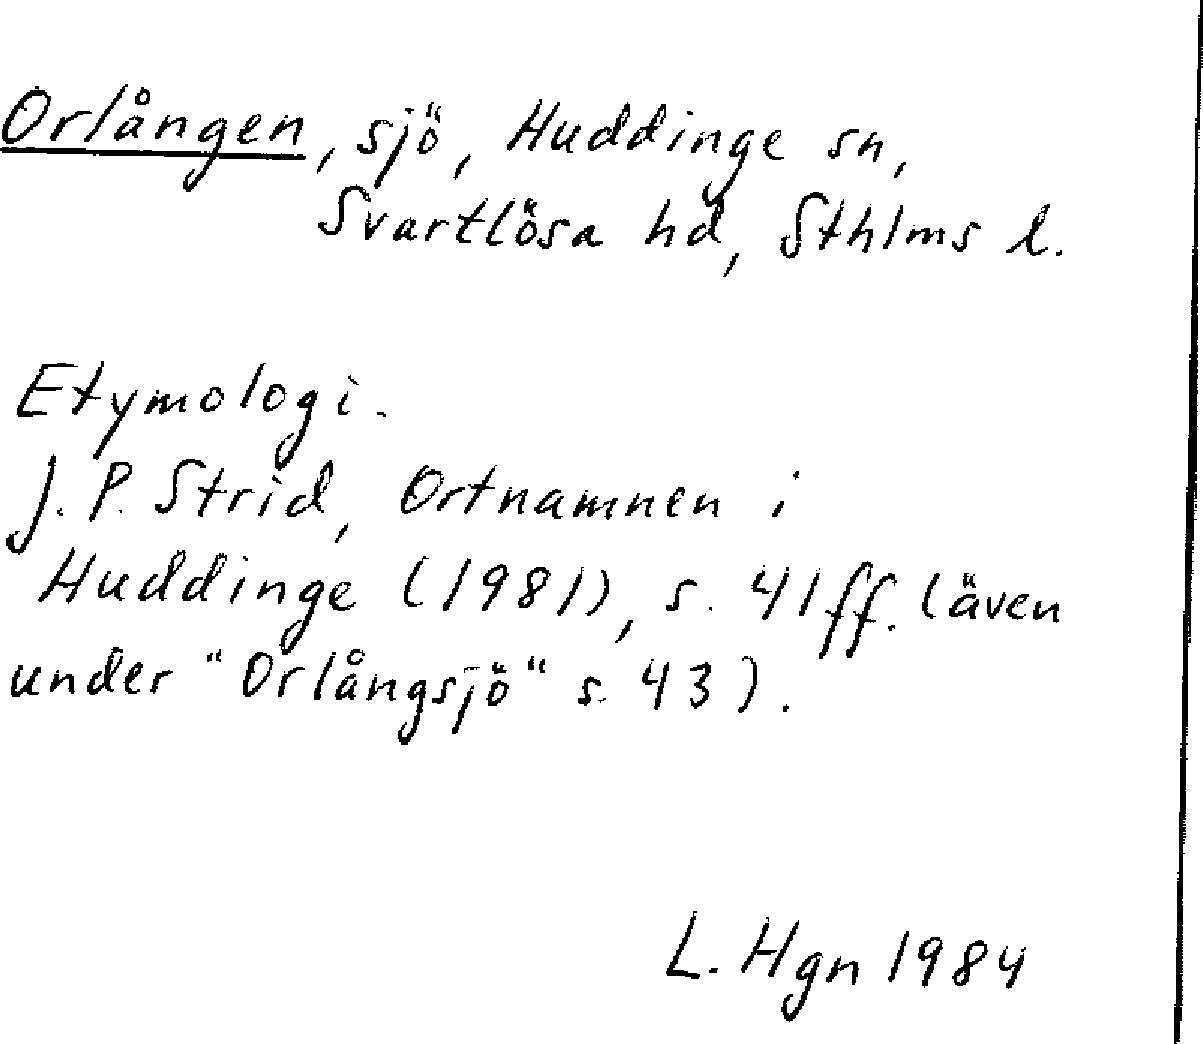 Orlången, sjö, Huddinge sn,
Svartlösa hd, Sthlms l.
Etymologi.
J. P. Strid, Ortnamnen i
Huddinge (1981), s. 41ff. (även
under "Orlångsjö" s. 43).
L. Hgn 1984